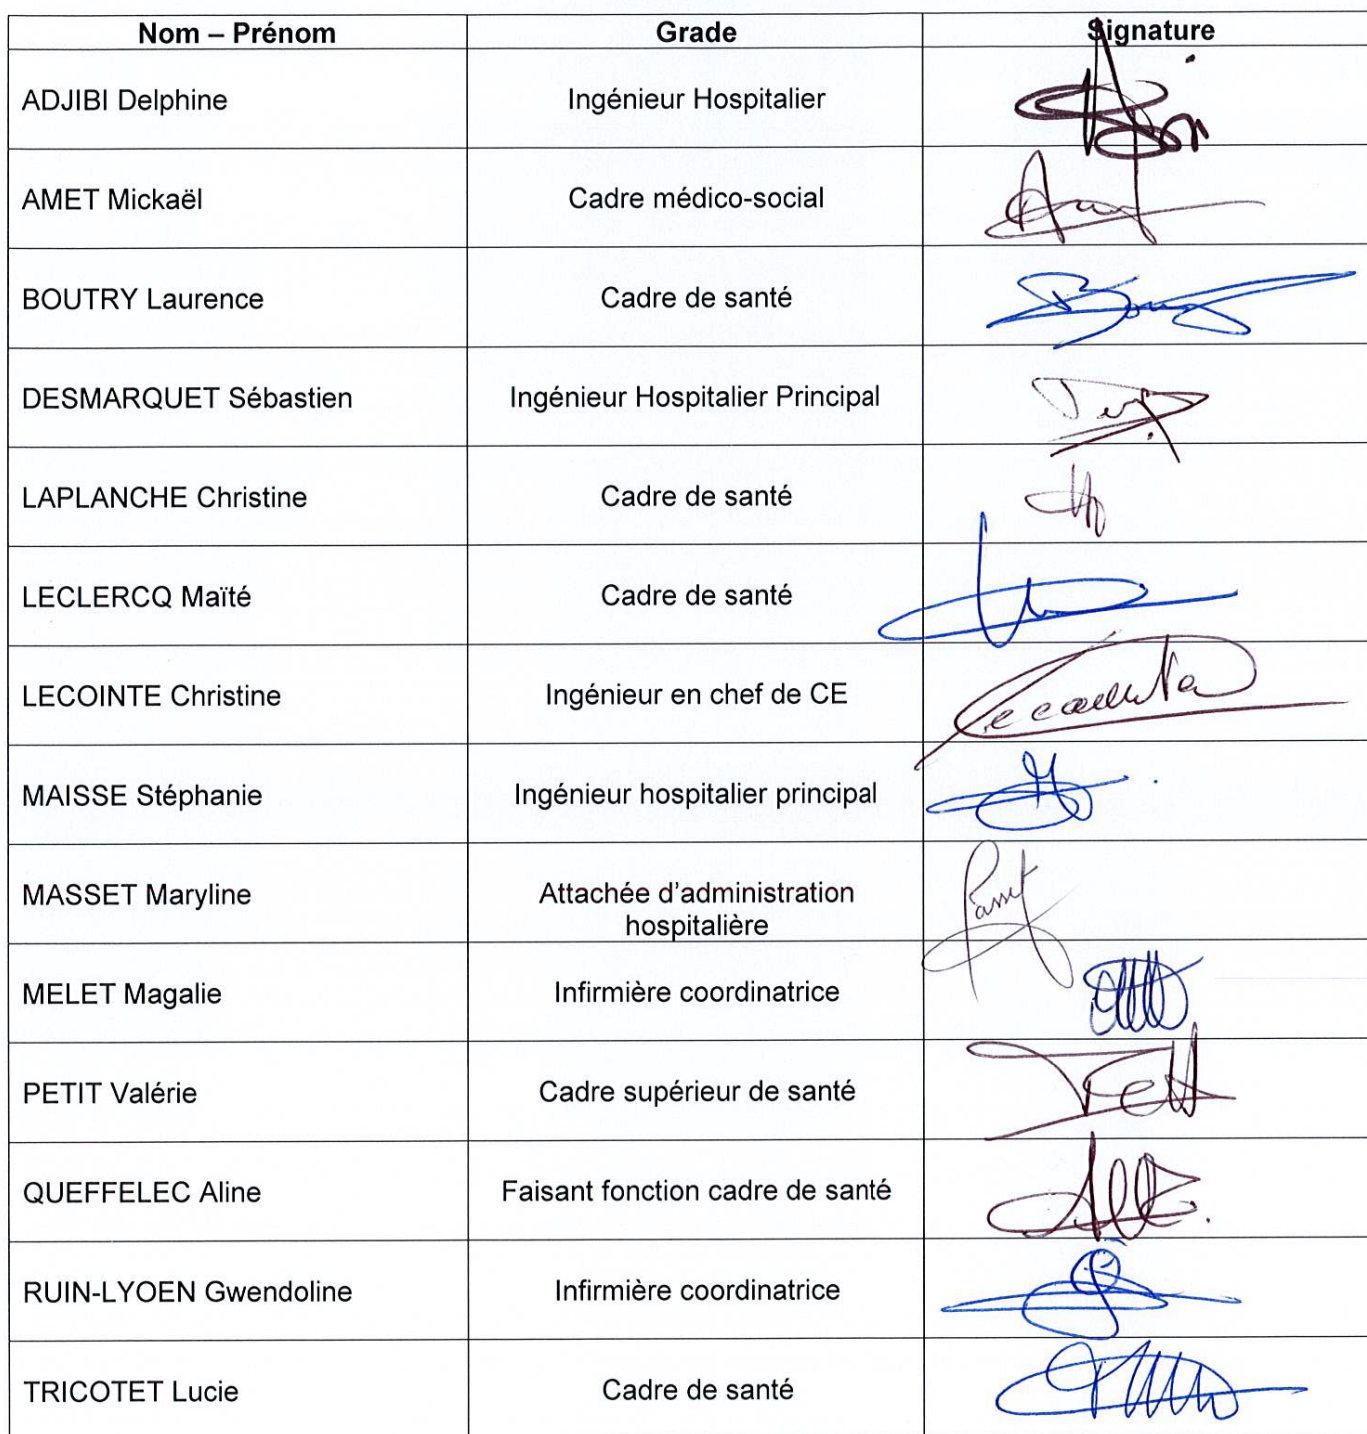 Nom – Prénom Grade Signature
ADJIBI Delphine Ingénieur Hospitalier
AMET Mickaël Cadre médico-social
BOUTRY Laurence Cadre de santé
DESMARQUET Sébastien Ingénieur Hospitalier Principal
LAPLANCHE Christine Cadre de santé
LECLERCQ Maïté Cadre de santé
LECOINTE Christine Ingénieur en chef de CE
MAISSE Stéphanie Ingénieur hospitalier principal
MASSET Maryline Attachée d'administration
hospitalière
MELET Magalie Infirmière coordinatrice
PETIT Valérie Cadre supérieur de santé
QUEFFELEC Aline Faisant fonction cadre de santé
RUIN-LYOEN Gwendoline Infirmière coordinatrice
TRICOTET Lucie Cadre de santé